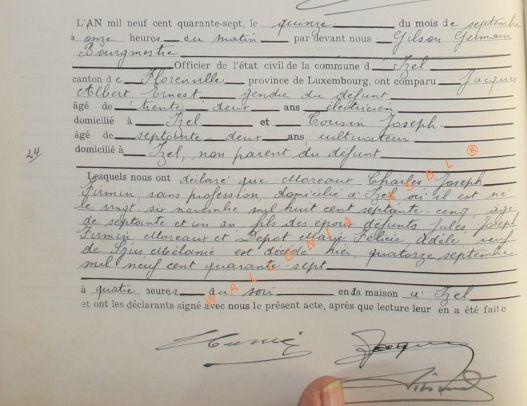 L'AN mil neuf cent quarante-sept, le quinze du mois de septembre
à onze heures du matin par devant nous Gilson Germain
Bourgmestre
Officier de l'état civil de la commune d'Izel
canton de Florenville province de Luxembourg, ont comparu Jacques
Albert Ernest, gendre du défunt
âgé de trente deux ans électricien
domicilié à Izel et Cousin Joseph
âgé de septante deux ans cultivateur
domicilié à Izel, non parent du défunt
24
Lesquels nous ont déclaré que Moreaux Charles Joseph
Firmin, sans profession, domicilié à Izel où il est né
le vingt six novembre mil huit cent septante-cinq, âgé
de septante et un an, fils des époux défunts Jules Joseph
Firmin Moreaux et Marie Félicie Adèle, veuf
de Mélanie est décédé hier, quatorze septembre
mil neuf cent quarante-sept
à quatre heures du soir en sa maison à Izel
et ont les déclarants signé avec nous le présent acte, après que lecture leur en a été faite
WALLONIA ASBL ®
Jacques